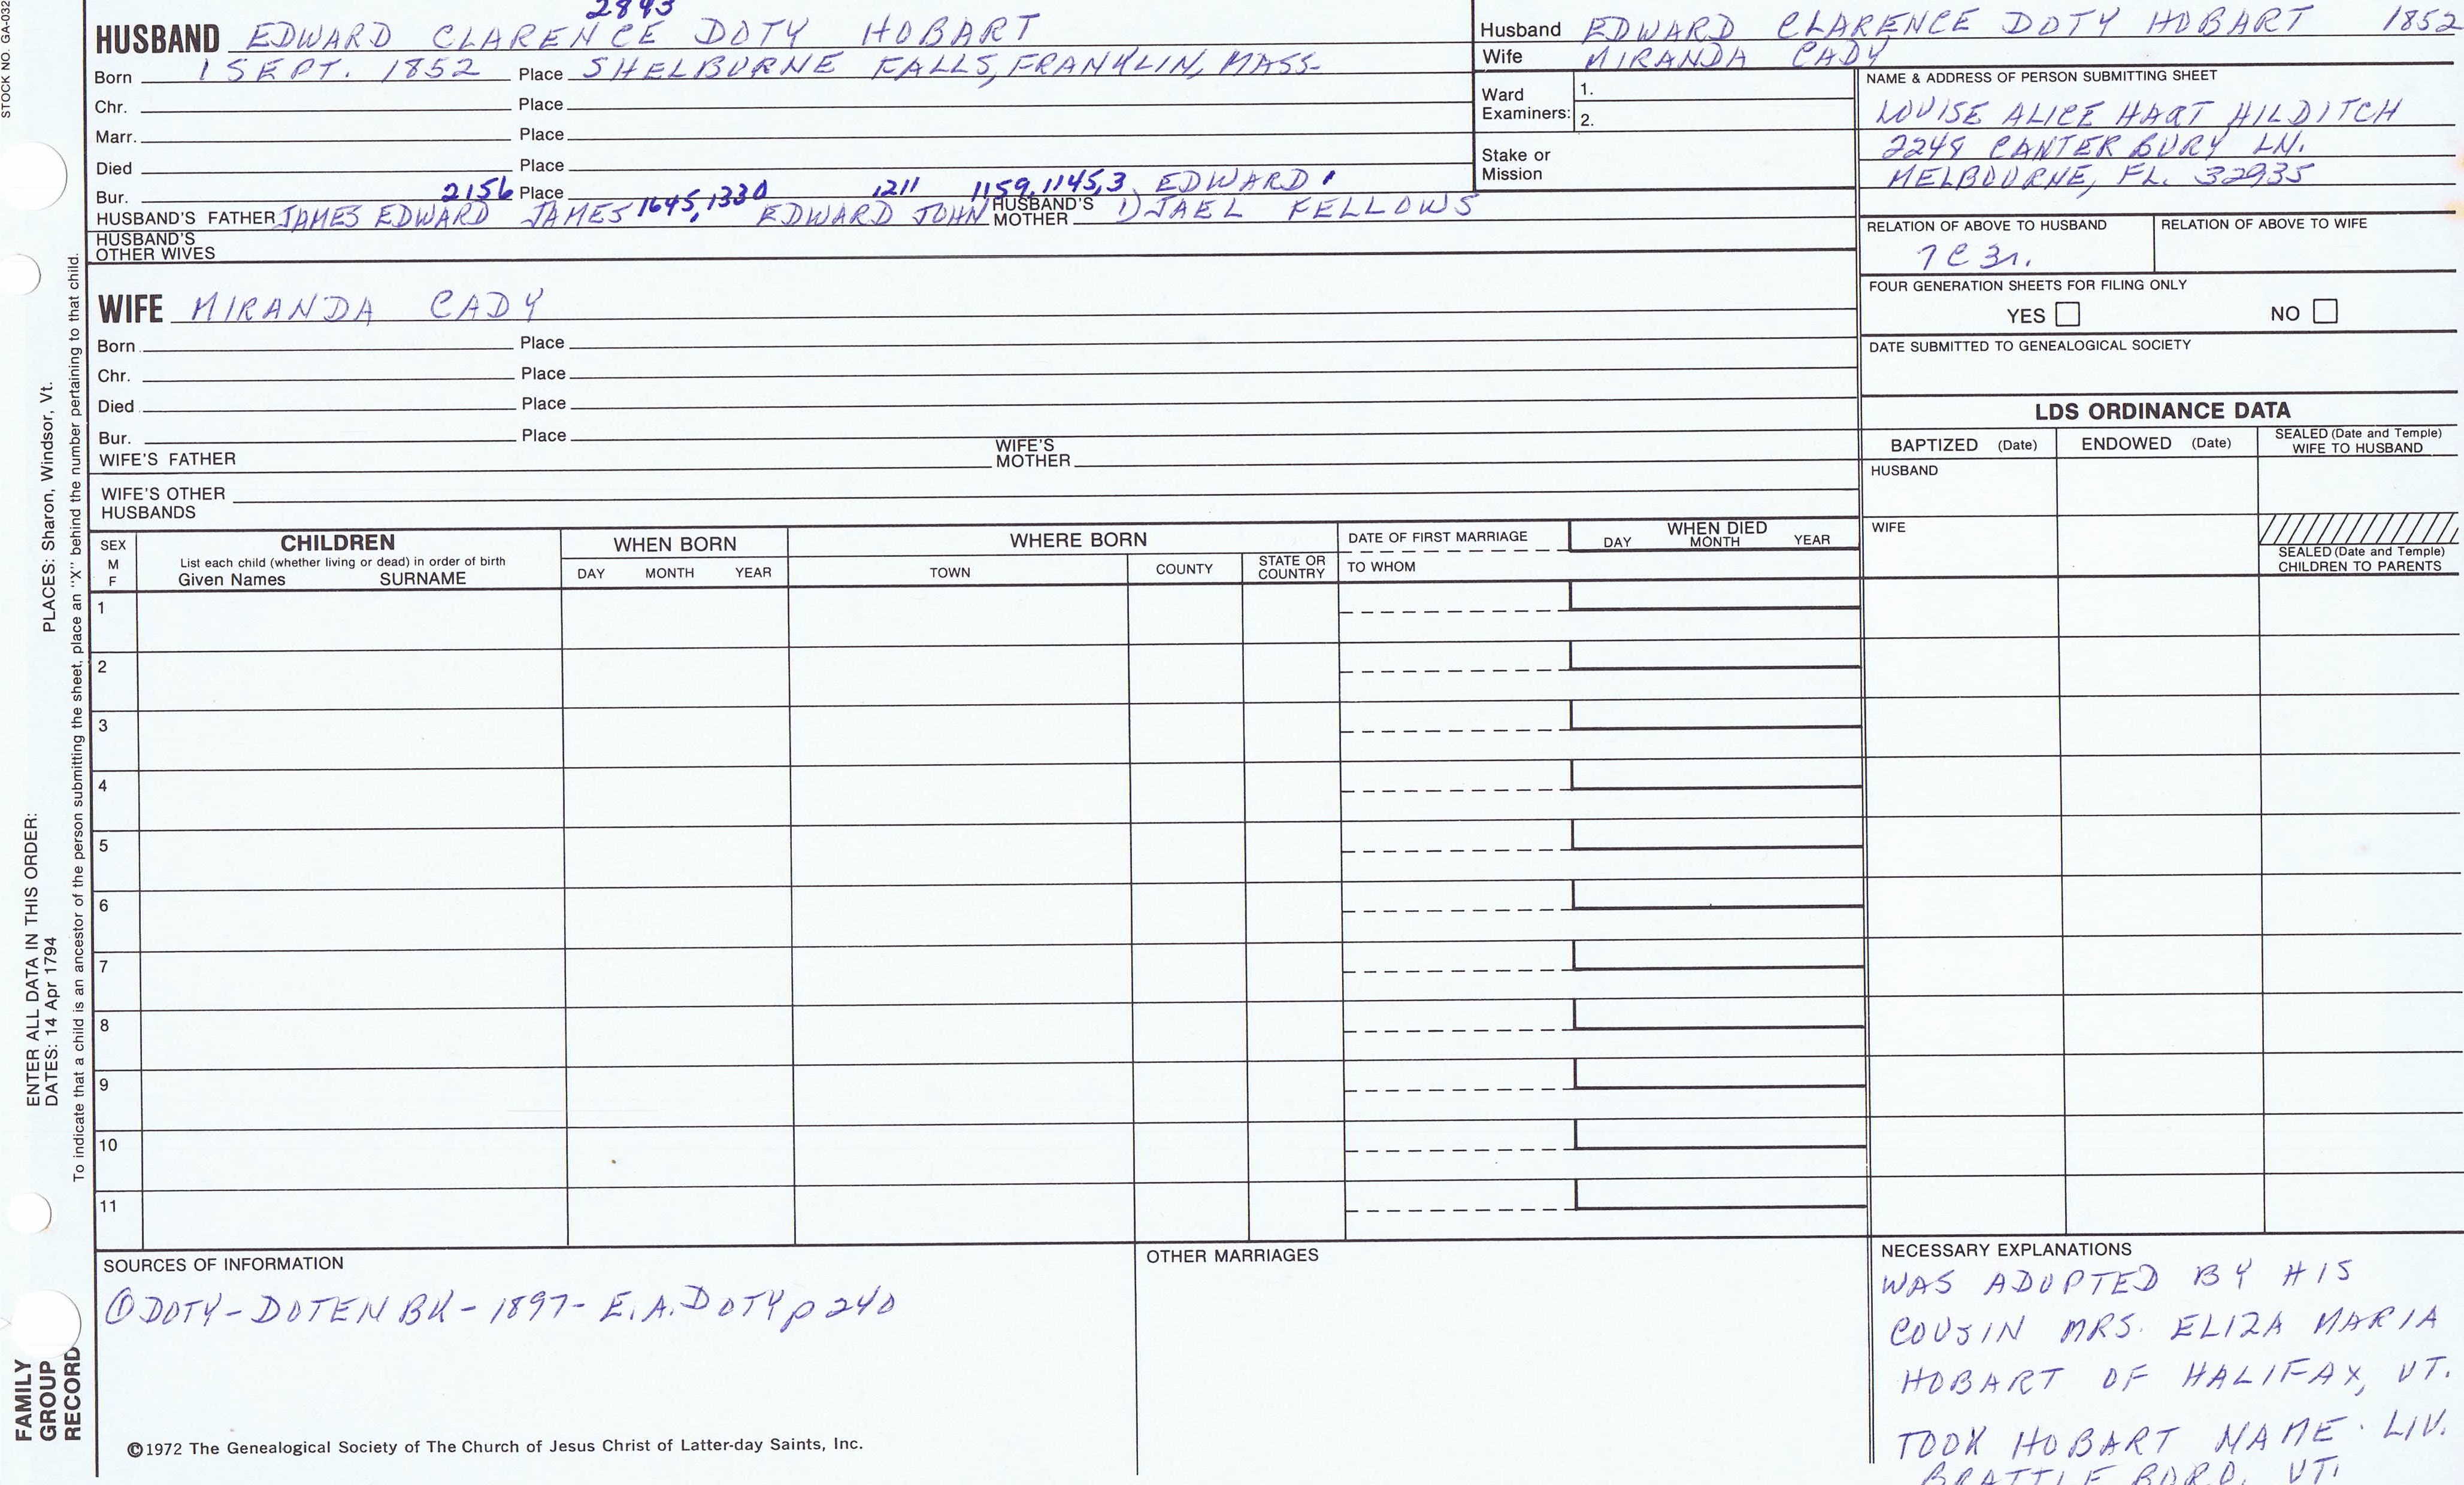 STOCK NO. GA-032
2893
HUSBAND EDWARD CLARENCE DOTY HOBART
Born 1 SEPT. 1852 Place SHELBURNE FALLS, FRANKLIN, MASS
Chr. Place
Marr. Place
Died Place
Bur. Place
2156 1645, 1330 1211 1159, 1145, 3 EDWARD 1
HUSBAND'S FATHER JAMES EDWARD JAMES EDWARD JOHN HUSBAND'S MOTHER 1) JAEL FELLOWS
HUSBAND'S OTHER WIVES
WIFE MIRANDA CADY
Born Place
Chr. Place
Died Place
Bur. Place
WIFE'S FATHER WIFE'S MOTHER
WIFE'S OTHER HUSBANDS
Husband EDWARD CLARENCE DOTY HOBART 1852
Wife MIRANDA CADY
Ward Examiners: 1.
2.
Stake or Mission
NAME & ADDRESS OF PERSON SUBMITTING SHEET
LOUISE ALICE HART HILDITCH
2248 CANTERBURY LN.
MELBOURNE, FL. 32935
RELATION OF ABOVE TO HUSBAND RELATION OF ABOVE TO WIFE
7C3r.
FOUR GENERATION SHEETS FOR FILING ONLY
YES NO
DATE SUBMITTED TO GENEALOGICAL SOCIETY
LDS ORDINANCE DATA
BAPTIZED (Date) ENDOWED (Date) SEALED (Date and Temple) WIFE TO HUSBAND
HUSBAND
WIFE
SEALED (Date and Temple) CHILDREN TO PARENTS
SEX M F
CHILDREN
List each child (whether living or dead) in order of birth
Given Names SURNAME
WHEN BORN
DAY MONTH YEAR
WHERE BORN
TOWN COUNTY STATE OR COUNTRY
DATE OF FIRST MARRIAGE
TO WHOM
WHEN DIED
DAY MONTH YEAR
1
2
3
4
5
6
7
8
9
10
11
SOURCES OF INFORMATION
① DOTY-DOTEN BK-1897-E.A.DOTY p 240
OTHER MARRIAGES
NECESSARY EXPLANATIONS
WAS ADOPTED BY HIS
COUSIN MRS. ELIZA MARIA
HOBART OF HALIFAX, VT.
TOOK HOBART NAME. LIV.
BRATTLEBORO, VT.
©1972 The Genealogical Society of The Church of Jesus Christ of Latter-day Saints, Inc.
FAMILY GROUP RECORD
ENTER ALL DATA IN THIS ORDER:
DATES: 14 Apr 1794
PLACES: Sharon, Windsor, Vt.
To indicate that a child is an ancestor of the person submitting the sheet, place an "X" behind the number pertaining to that child.